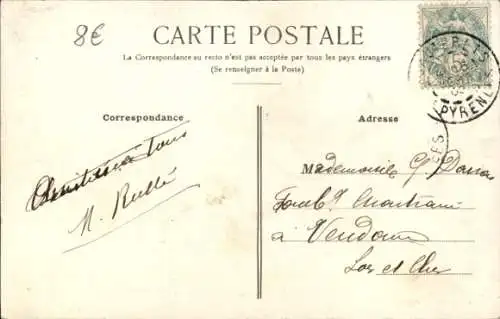 8€
CARTE POSTALE
La Correspondance au recto n'est pas acceptée par tous les pays étrangers
(Se renseigner à la Poste)
Correspondance
Adresse
à tous
Mademoiselle G
Faub.g Chartrain
à Vendôme
Loir et Cher
PYRÉN